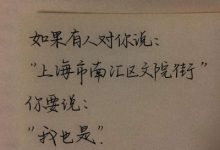 如果有人对你说：
“上海市南汇区文院街”
你要说：
“我也是”.